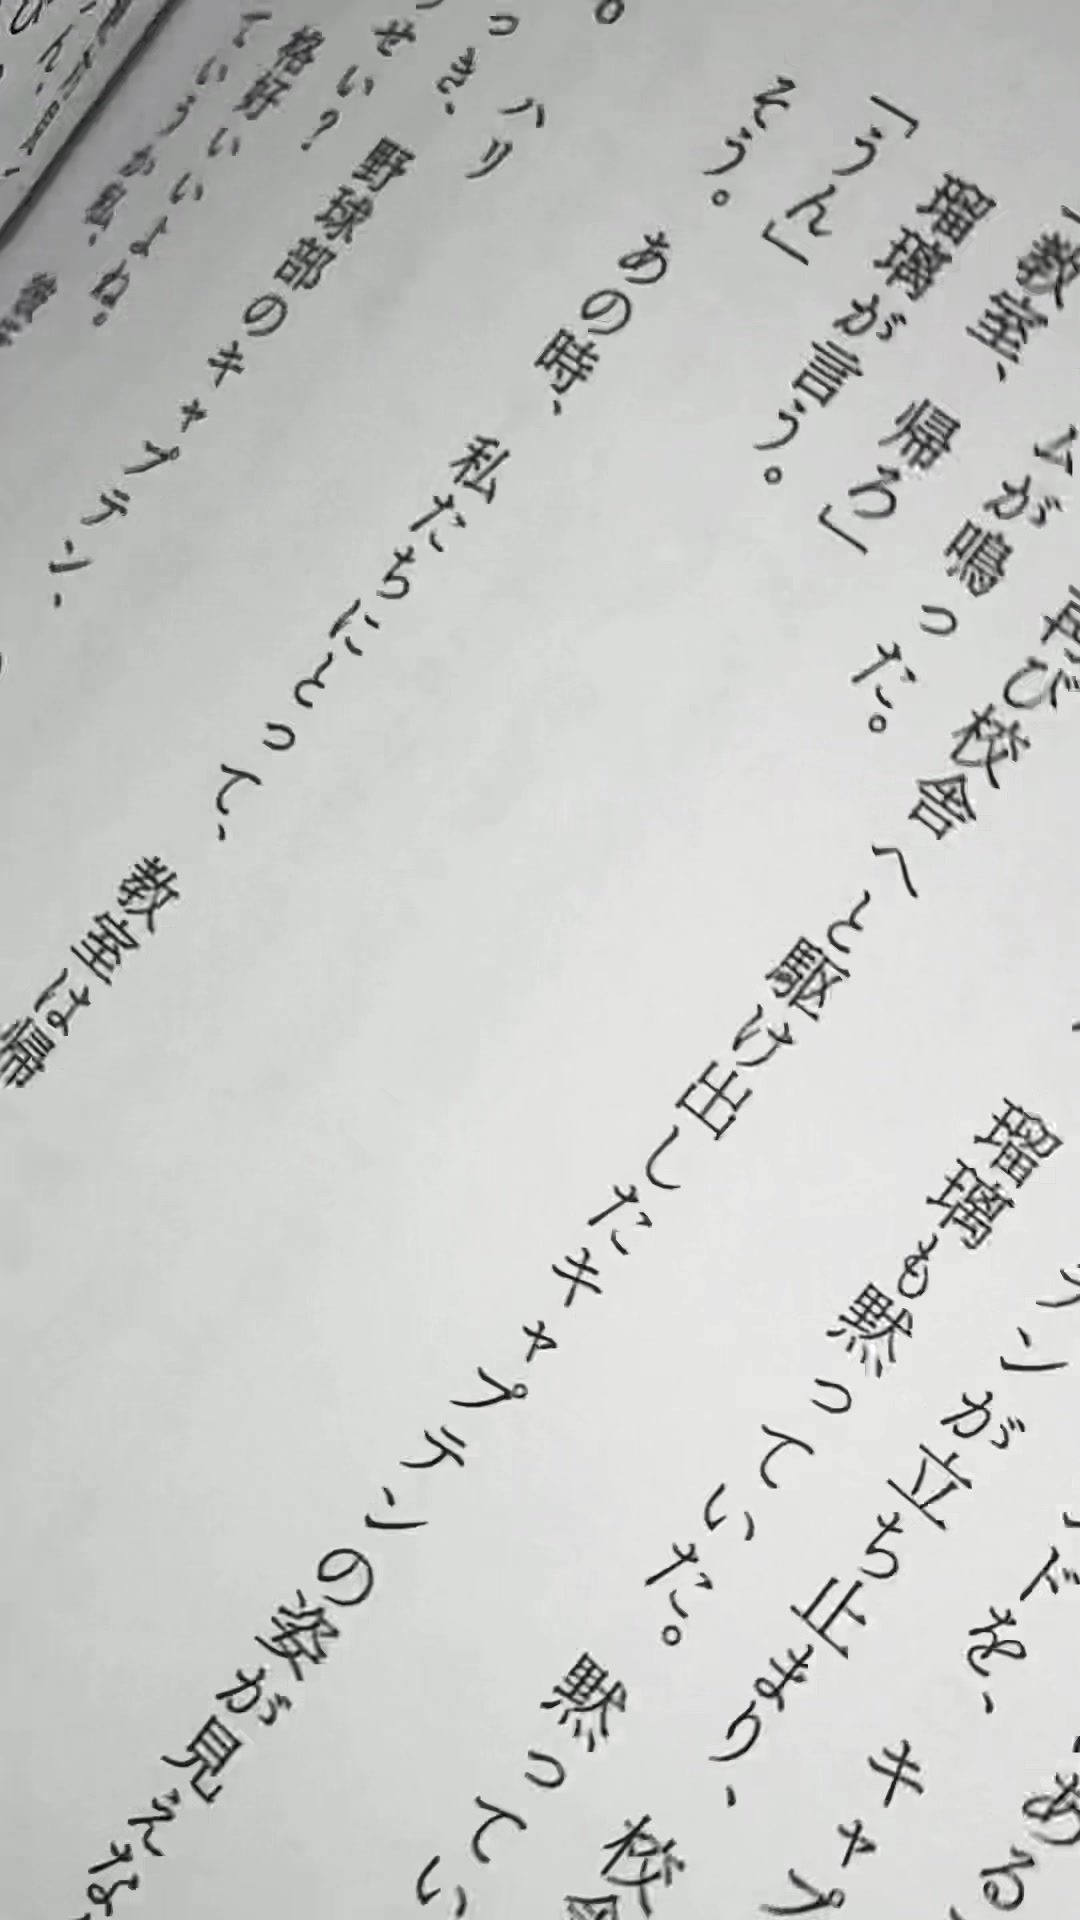 ある
ドを、キャプ
テンが立ち止まり、校舎
瑠璃も黙っていた。黙ってい
再び校舎へと駆け出したキャプテンの姿が見えな
ムが鳴った。
「教室、帰ろ」
瑠璃が言う。
「うん」
そう。あの時、私たちにとって、教室は帰
ハリ
っき、野球部のキャプテン、
せい?
格好いいよね。
ていうか私、